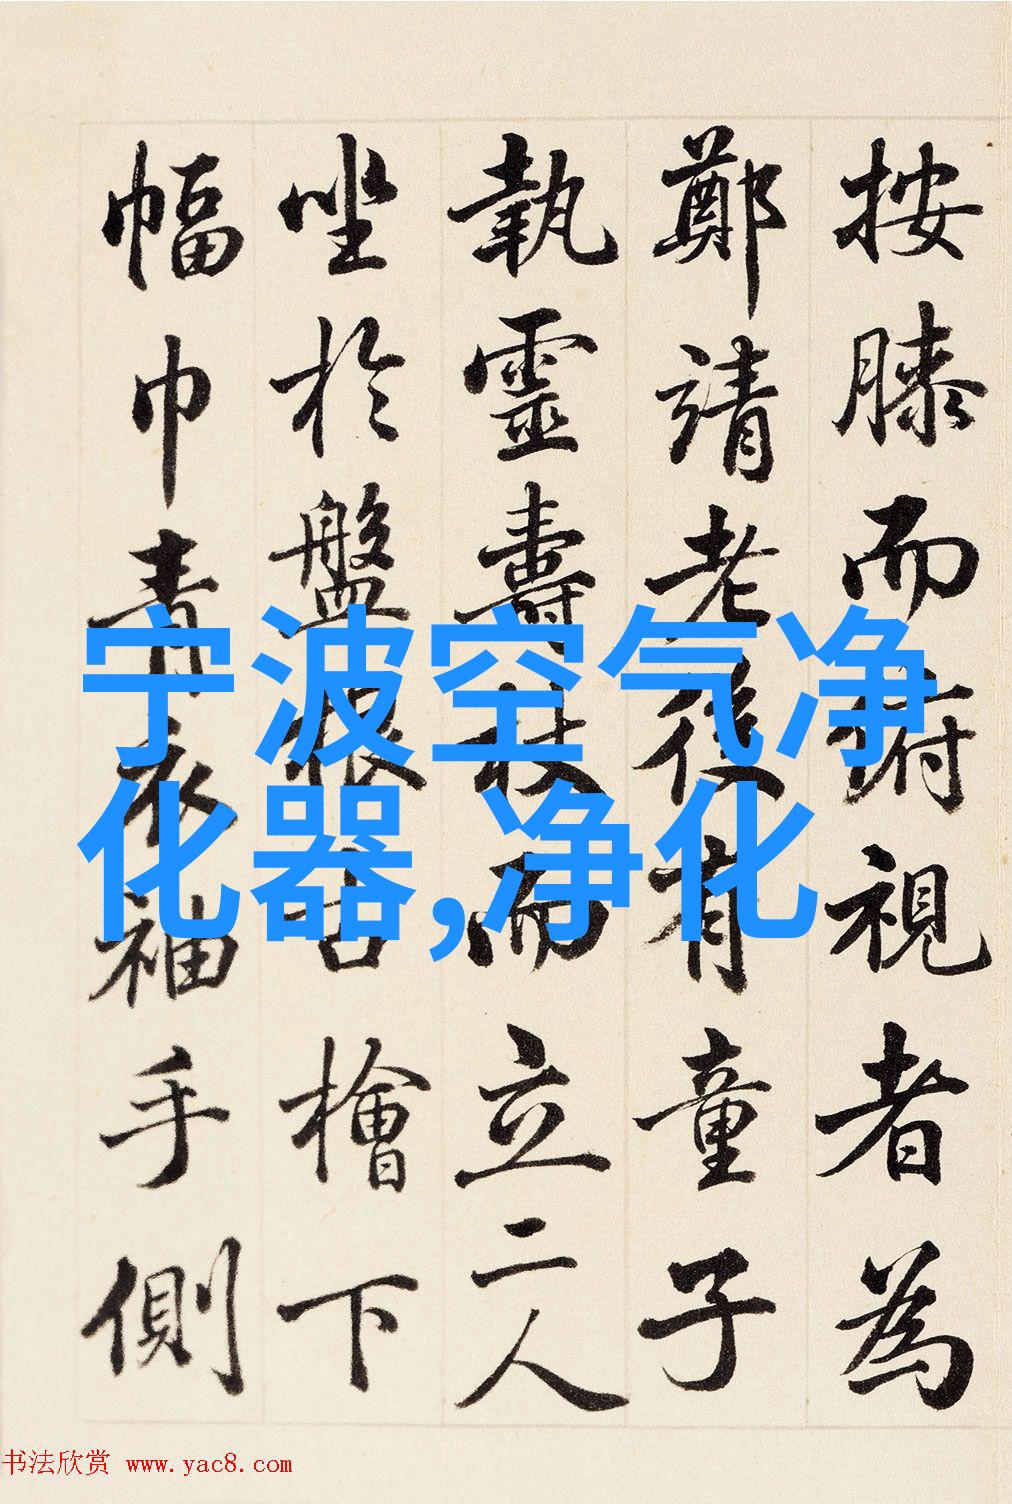 按膝而謝視者為
鄭靖老後有童子
執靈壽杖而立二人
坐於盤根古檜下
幅巾青衣袖手側
宁波空气净
化器,净化
书法欣赏 www.yac8.com